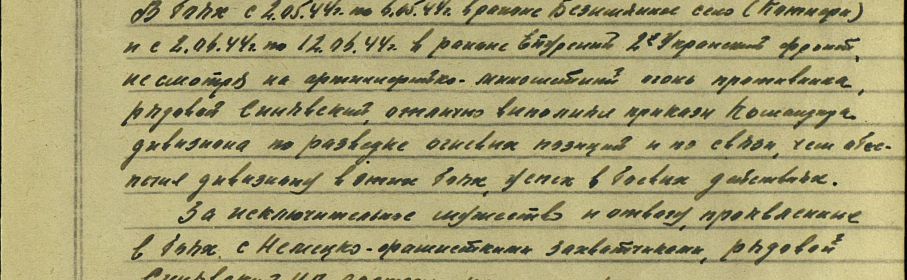 В боях с 2.05.44г. по 6.05.44г. в районе Безымянное село (
и с 2.06.44г. по 12.06.44г. в районе 2й Украинский фронт,
не смотря на артиллерийско-минометный огонь противника,
рядовой Синявский, отлично выполнял приказы Командира
дивизиона по разведке огневых позиций и по связи, чем обес-
печил дивизиону в этих боях, успех в боевых действиях.
За исключительное мужество и отвагу, проявленные
в боях с Немецко-фашисткими захватчиками, рядовой